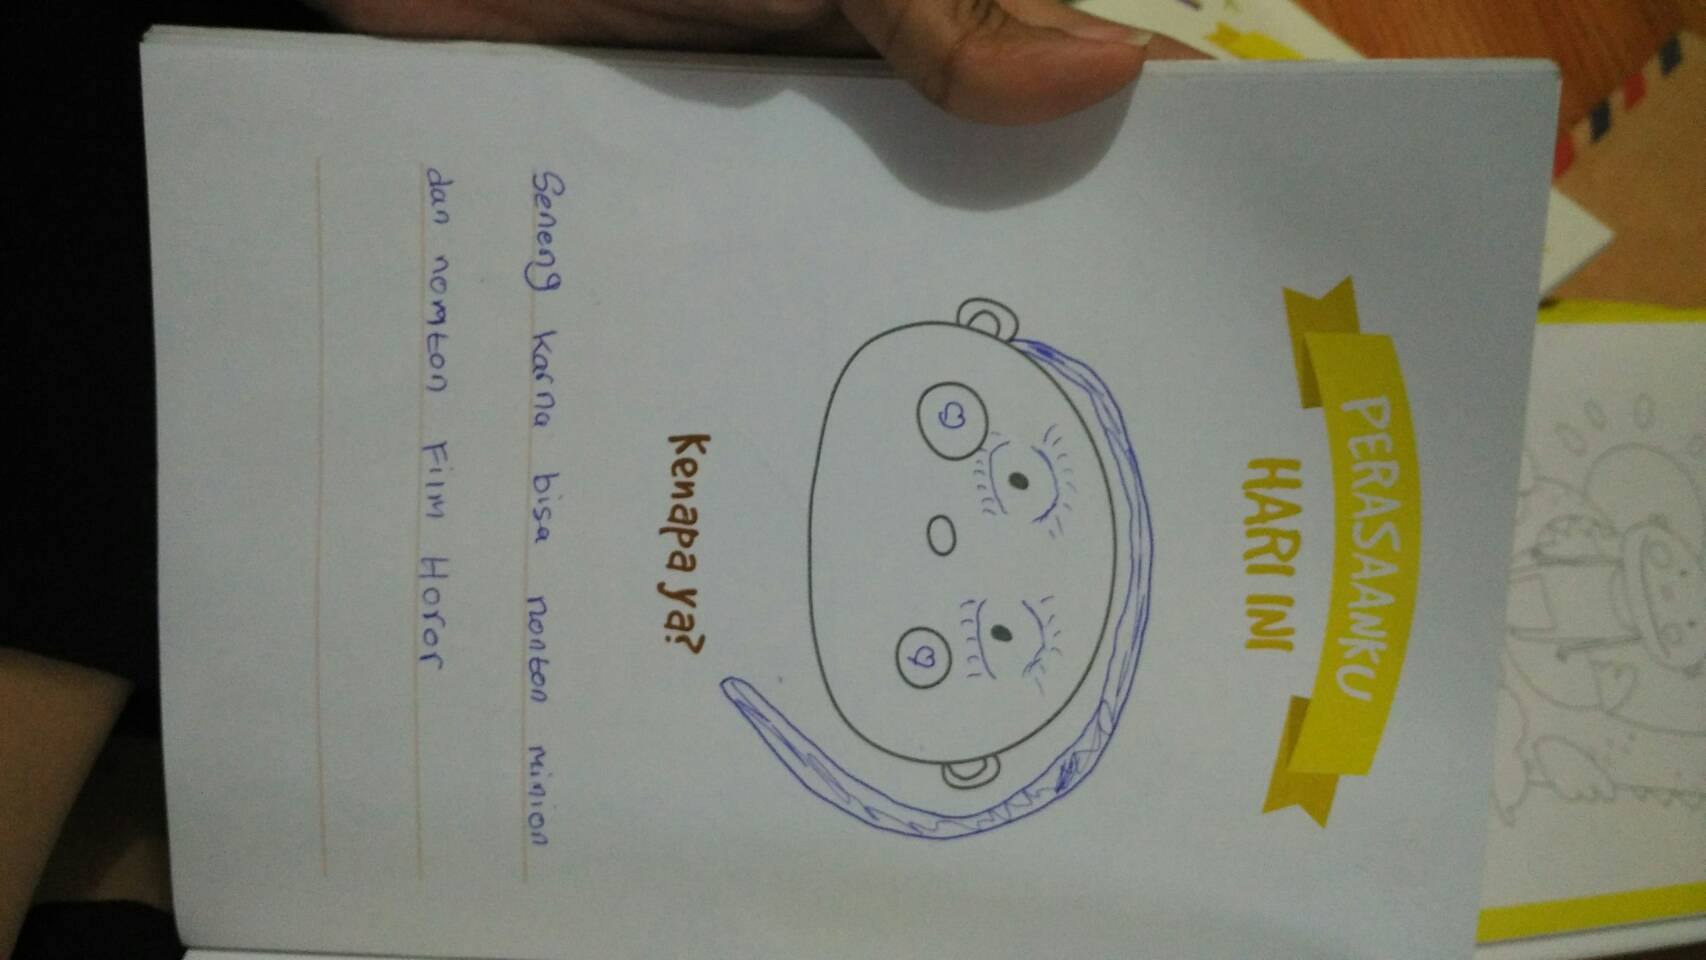 PERASAANKU
HARI INI
Kenapa ya?
Seneng karna bisa nonton minion
dan nonton Film Horor